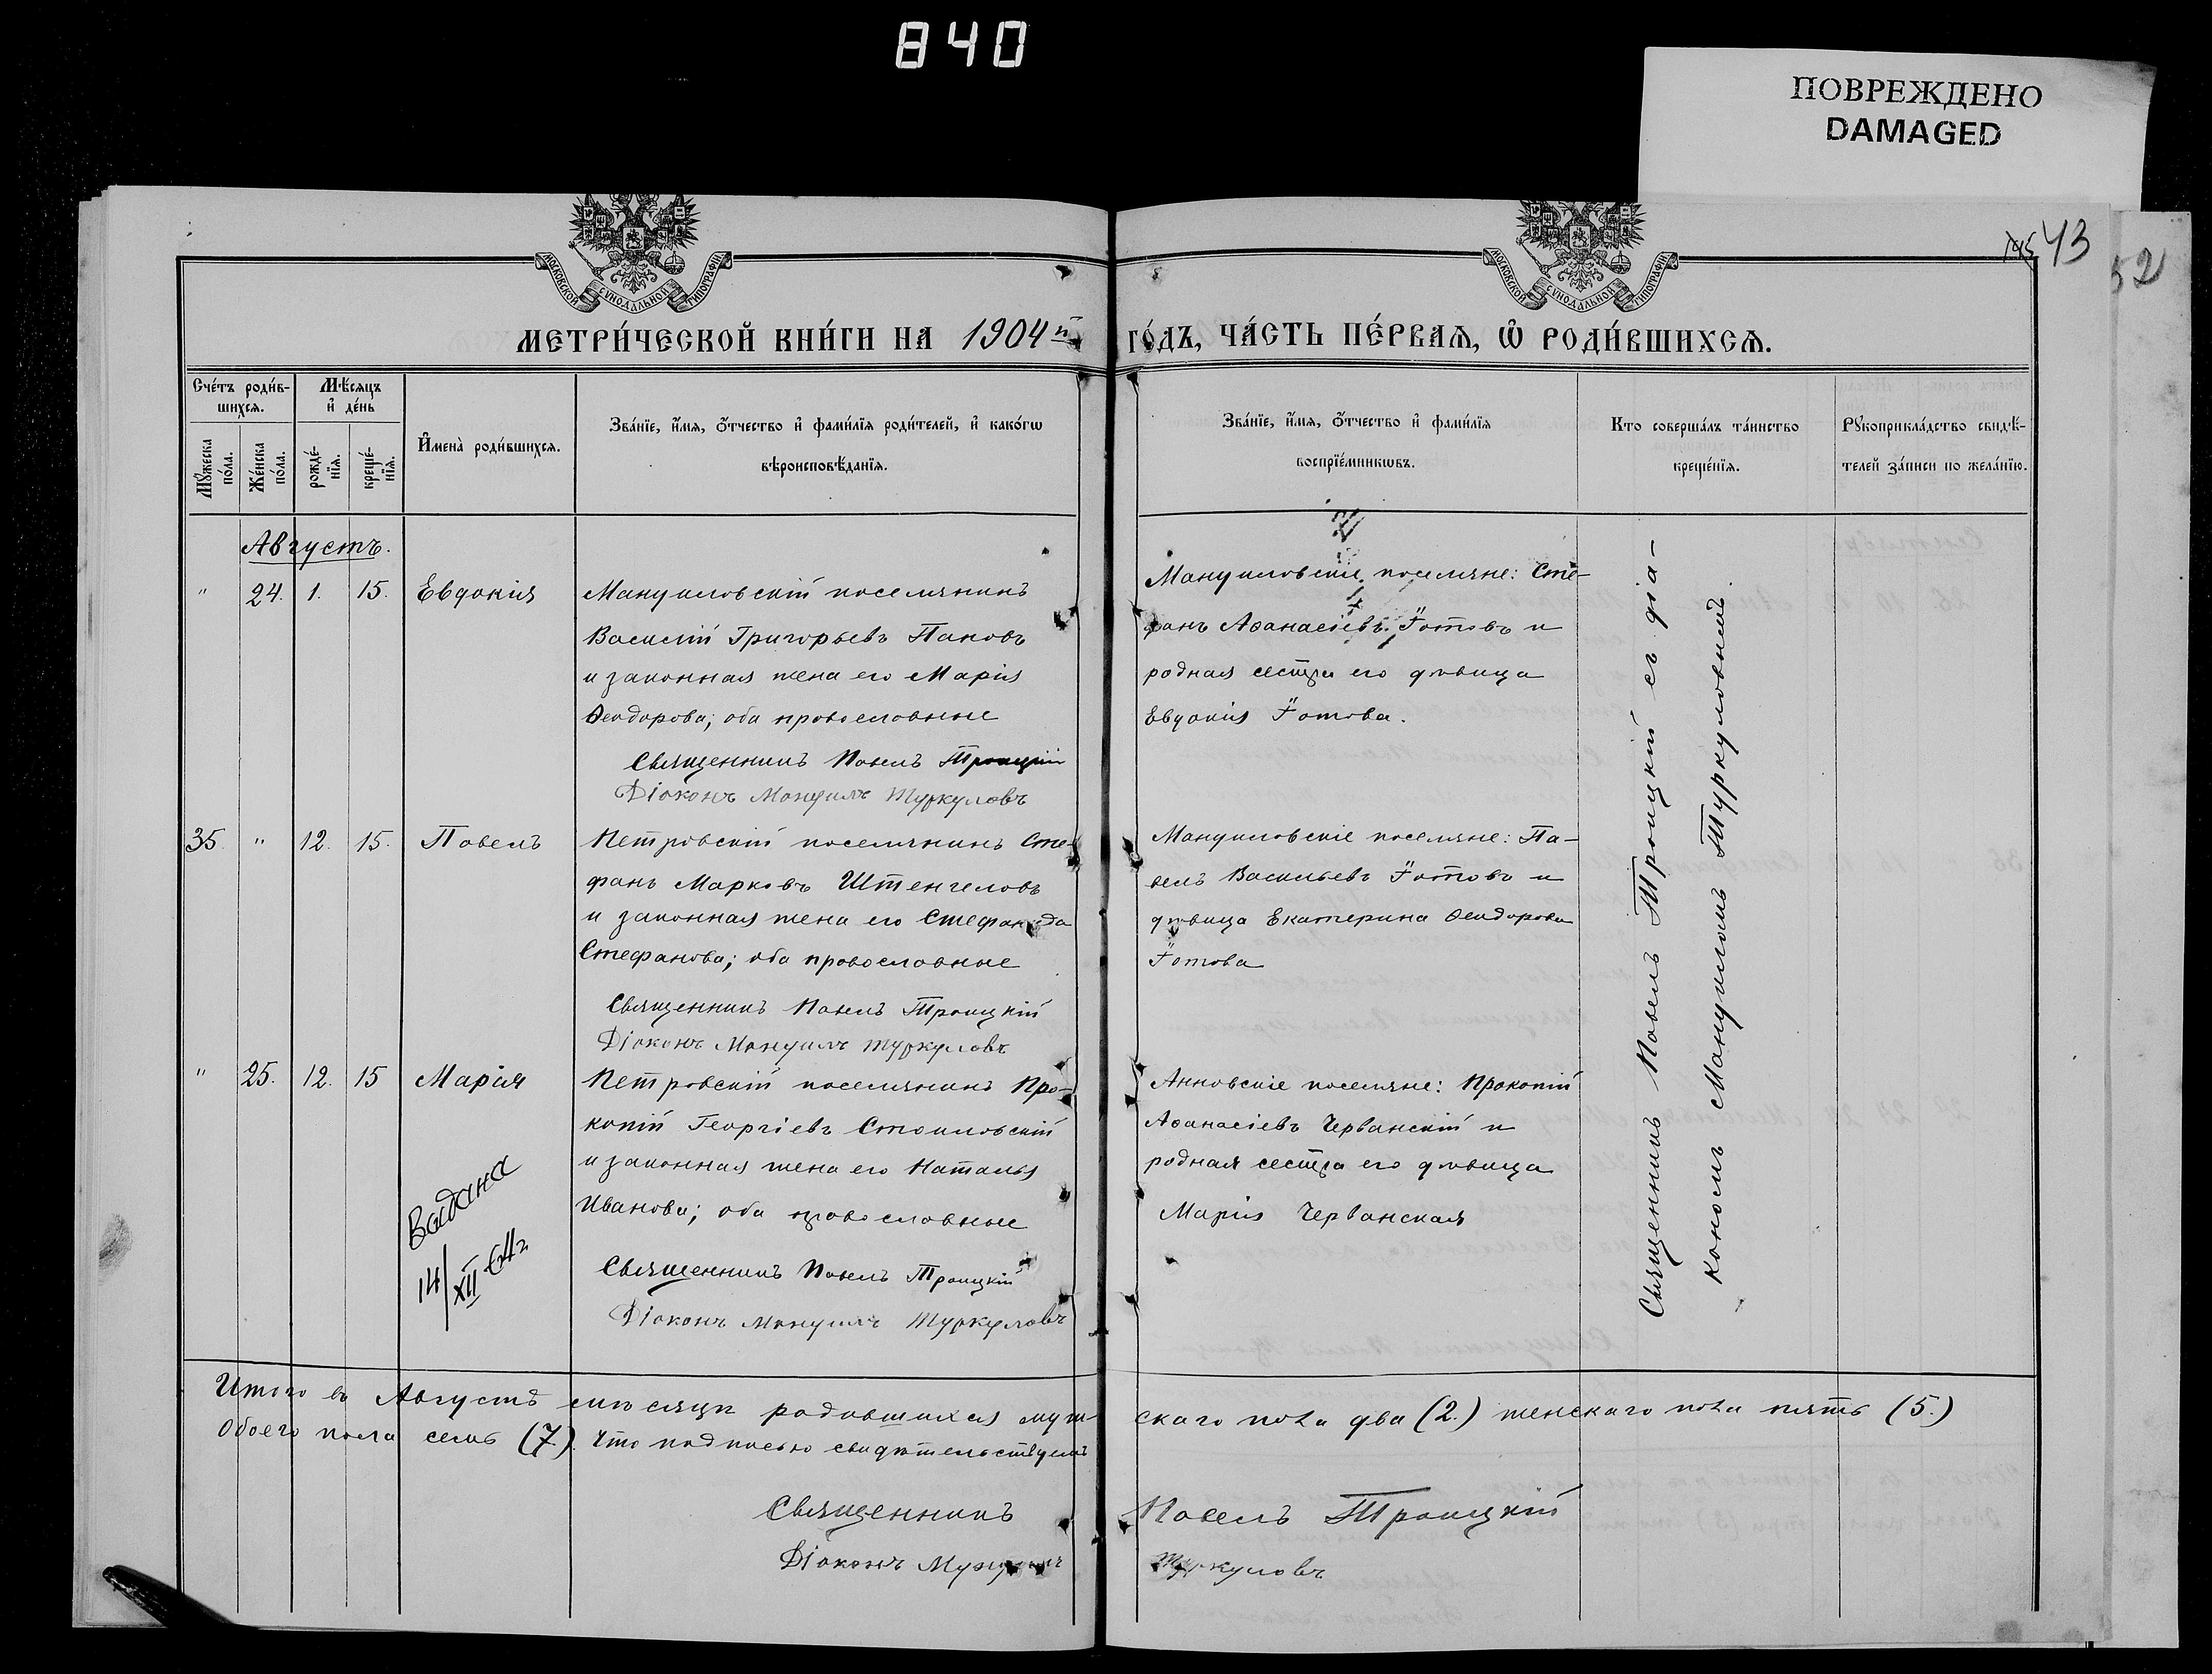 840
ПОВРЕЖДЕНО
DAMAGED
43
52
МОСКОВСКОЙ СУНОДАЛЬНОЙ ТИПОГРАФІИ
МОСКОВСКОЙ СУНОДАЛЬНОЙ ТИПОГРАФІИ
МЕТРИ́ЧЕСКОЙ КНИ́ГИ НА 1904й ГО́ДЪ, ЧА́СТЬ ПЕ́РВАѦ, Ѡ҆ РОДИ́ВШИХСѦ.
Сче́тъ роди́в-
шихсѧ.
Мꙋ́жеска по́ла.
Же́нска по́ла.
Мѣ́сѧцъ
и҆ де́нь
рожде́-
нїѧ.
креще́-
нїѧ.
И҆мена̀ роди́вшихсѧ.
Зва́нїе, и҆́мѧ, ѻ҆́тчество и҆ фами́лїѧ роди́телей, и҆ како́гѡ
вѣроисповѣ́данїѧ.
Зва́нїе, и҆́мѧ, ѻ҆́тчество и҆ фами́лїѧ
воспрїе́мникѡвъ.
Кто соверша́лъ та́инство
креще́нїѧ.
Рꙋкоприкла́дство свидѣ́-
телей за́писи по жела́нїю.
Августъ.
" 24. 1. 15. Евдокія
Мануиловскій поселянинъ
Василій Григорьевъ Пановъ
и законная жена его Марія
Ѳеодорова; оба православные
Священникъ Павелъ Троицкій
Діаконъ Мануилъ Туркуловъ
Мануиловскіе поселяне: Сте-
фанъ Аѳанасіевъ Ӻотовъ и
родная сестра его дѣвица
Евдокія Ӻотова.
35. " 12. 15. Павелъ
Петровскій поселянинъ Сте-
фанъ Марковъ Штенгеловъ
и законная жена его Стефанида
Стефанова; оба православные
Священникъ Павелъ Троицкій
Діаконъ Мануилъ Туркуловъ
Мануиловскіе поселяне: Па-
велъ Васильевъ Ӻотовъ и
дѣвица Екатерина Ѳеодорова
Ӻотова
" 25. 12. 15 Марія
Петровскій поселянинъ Про-
копій Георгіевъ Стоиловскій
и законная жена его Наталья
Иванова; оба православные
Священникъ Павелъ Троицкій
Діаконъ Мануилъ Туркуловъ
Анновскіе поселяне: Прокопій
Аѳанасіевъ Черванскій и
родная сестра его дѣвица
Марія Черванская
Выдана
14/XII-64г
Священникъ Павелъ Троицкій съ діа-
кономъ Мануиломъ Туркуловымъ.
Итого въ Августѣ мѣсяцѣ родившихся муж-скаго пола два (2.) женскаго пола пять (5.)
Обоего пола семь (7.). Что подписью свидѣтельствуемъ
Священникъ Павелъ Троицкій
Діаконъ Мануилъ Туркуловъ